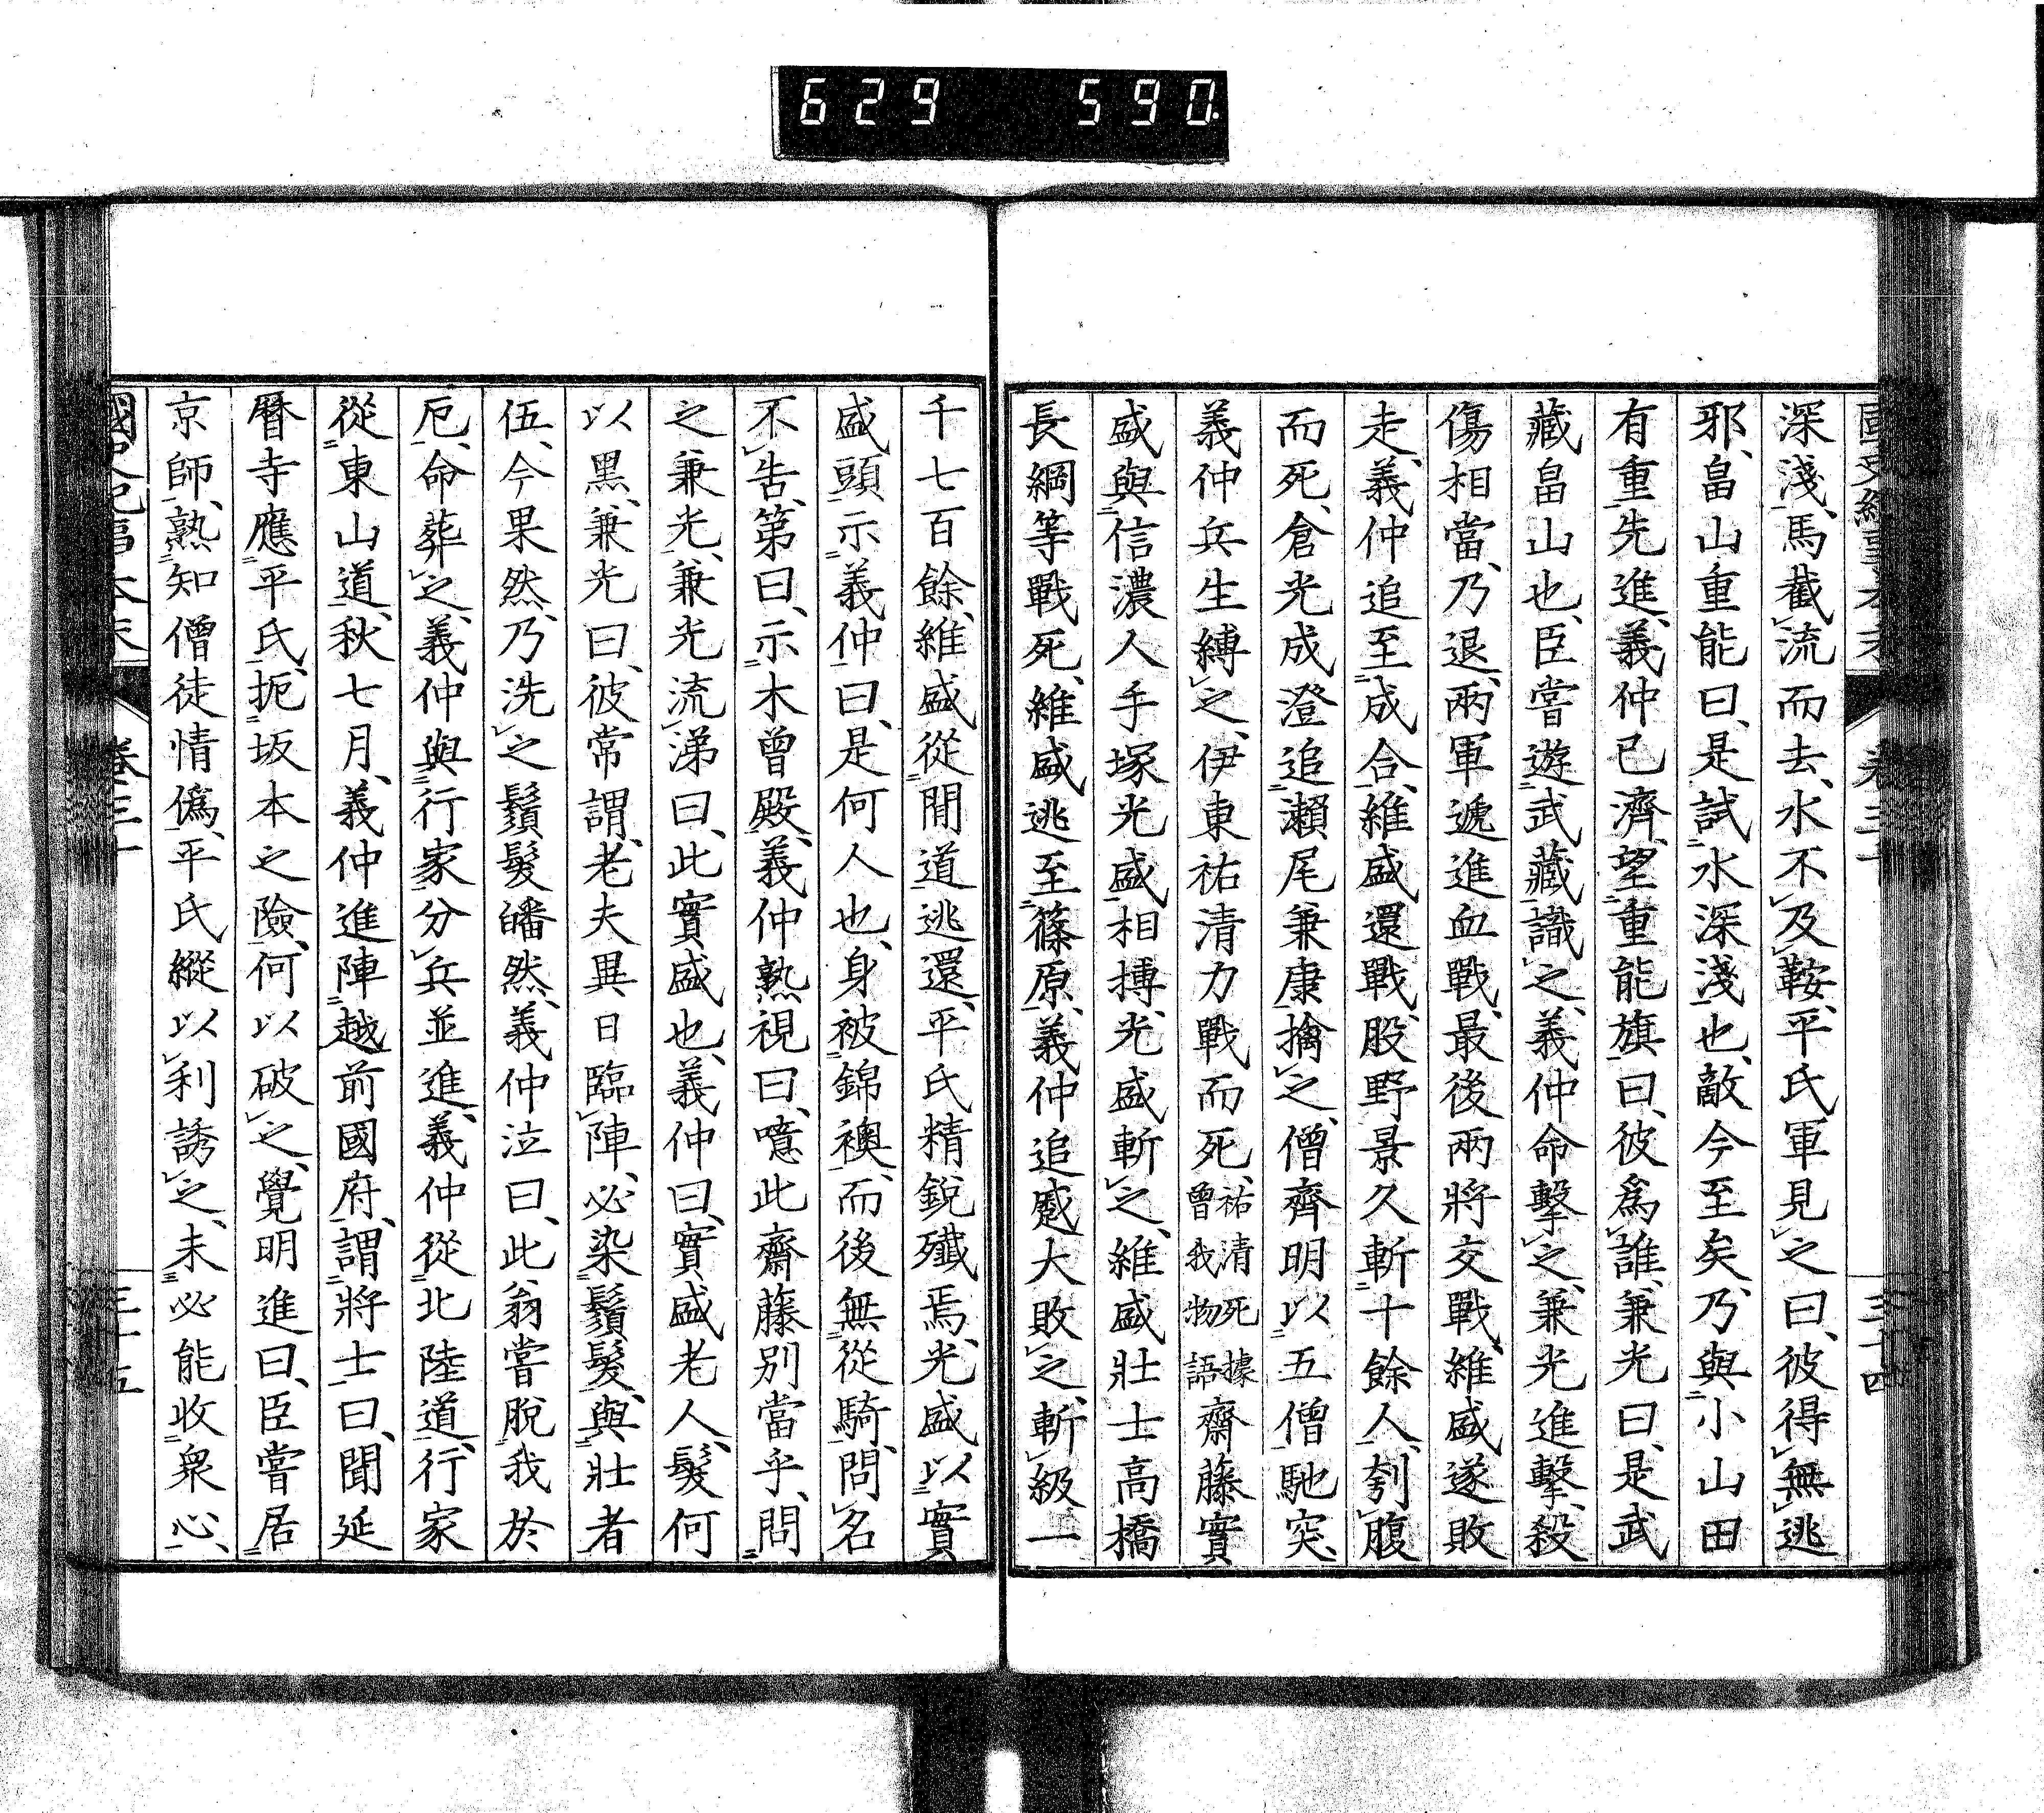 629 590
國史紀事本末 卷三十 三十四
深淺、馬截流而去、水不及鞍、平氏軍見之曰、彼得無逃
邪、畠山重能曰、是試水深淺也、敵今至矣、乃與小山田
有重先進、義仲已濟、望重能旗曰、彼爲誰、兼光曰、是武
藏畠山也、臣嘗遊武藏識之、義仲命擊之、兼光進擊、殺
傷相當、乃退、兩軍遞進血戰、最後兩將交戰、維盛遂敗
走、義仲追至成合、維盛還戰、股野景久斬十餘人、刳腹
而死、倉光成澄追瀨尾兼康擒之、僧齊明以五僧馳突、
義仲兵生縛之、伊東祐清力戰而死、祐清死據曾我物語齋藤實
盛與信濃人手塚光盛相搏、光盛斬之、維盛壯士高橋
長綱等戰死、維盛逃至篠原、義仲追蹙大敗之、斬級一
千七百餘、維盛從閒道逃還、平氏精銳殲焉、光盛以實
盛頭示義仲曰、是何人也、身被錦襖、而後無從騎、問名
不告、第曰、示木曾殿、義仲熟視曰、噫此齋藤別當乎、問
之兼光、兼光流涕曰、此實盛也、義仲曰、實盛老人、髮何
以黑、兼光曰、彼常謂、老夫異日臨陣、必染鬚髮、與壯者
伍、今果然、乃洗之鬚髮皤然、義仲泣曰、此翁嘗脫我於
厄、命葬之、義仲與行家分兵並進、義仲從北陸道、行家
從東山道、秋七月、義仲進陣越前國府、謂將士曰、聞延
曆寺應平氏、扼坂本之險、何以破之、覺明進曰、臣嘗居
京師、熟知僧徒情僞、平氏縱以利誘之、未必能收衆心、
國史紀事本末 卷三十 三十五